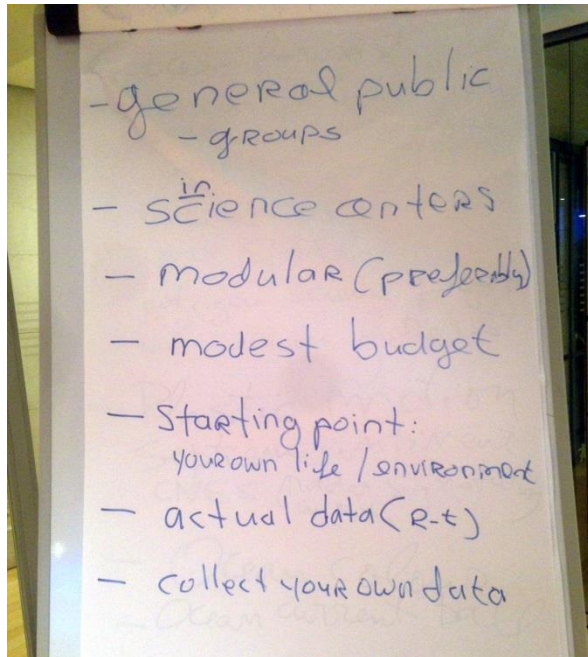 - general public
- groups
- in science centers
- modular (preferably)
- modest budget
- Starting point:
your own life / environment
- actual data (R-t)
- collect your own data